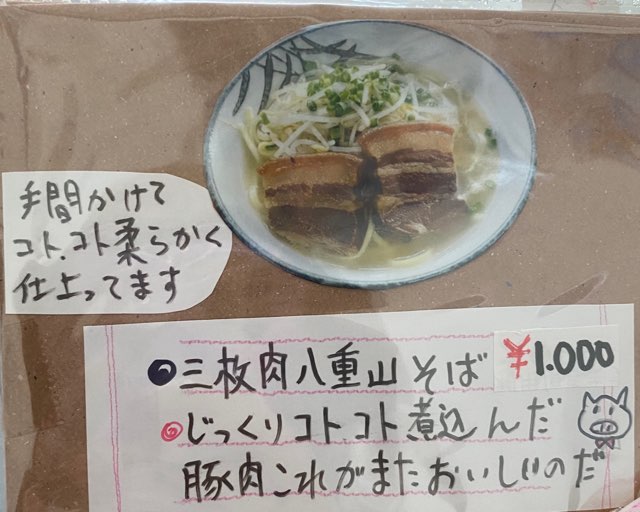 手間かけて
コト、コト柔らかく
仕上ってます
三枚肉八重山そば ¥1.000
じっくりコト、コト煮込んだ
豚肉これがまたおいしいのだ